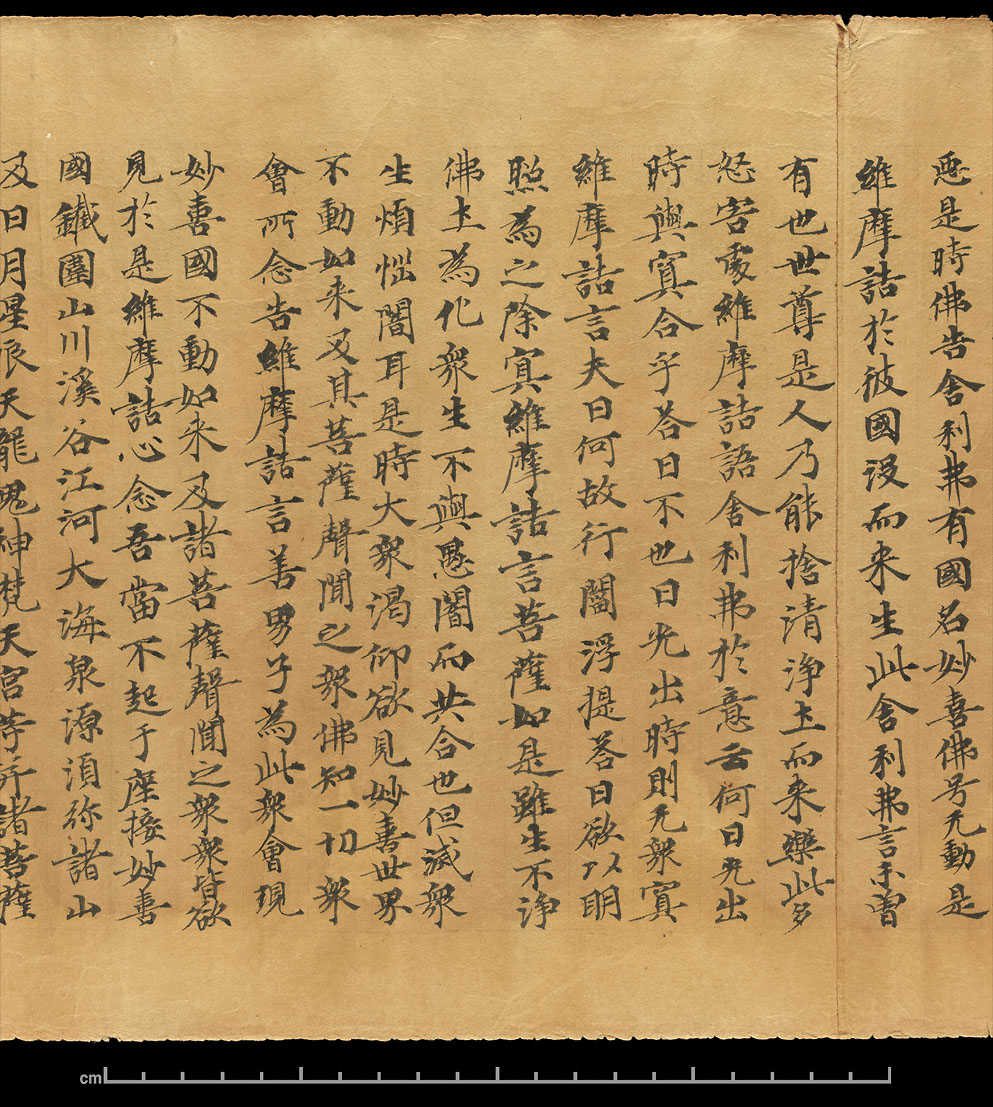 惡是時佛告舍利弗有國名妙喜佛号无動是
維摩詰於彼國沒而来生此舍利弗言未曾
有也世尊是人乃能捨清淨土而来樂此多
怒害處維摩詰語舍利弗於意云何日光出
時與冥合乎荅曰不也日光出時則无衆冥
維摩詰言夫日何故行閻浮提荅曰欲以明
照為之除冥維摩詰言菩薩如是雖生不淨
佛土為化衆生不與愚闇而共合也但滅衆
生煩惱闇耳是時大衆渴仰欲見妙喜世界
不動如来及其菩薩聲聞之衆佛知一切衆
會所念告維摩詰言善男子為此衆會現
妙喜國不動如来及諸菩薩聲聞之衆衆皆欲
見於是維摩詰心念吾當不起于座接妙喜
國鐵圍山川溪谷江河大海泉源湏弥諸山
及日月星辰天龍鬼神梵天宮等并諸菩薩